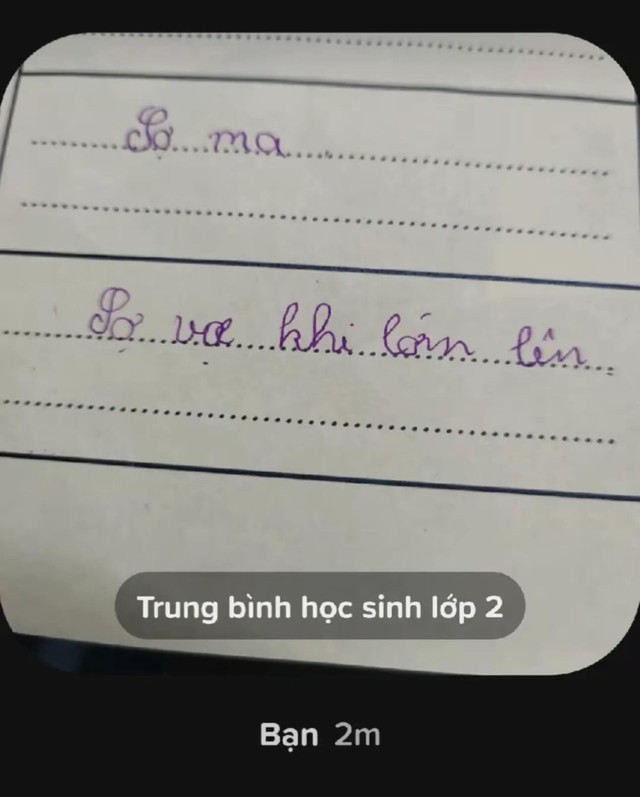 Sợ ma
Sợ vợ khi lớn lên
Trung bình học sinh lớp 2
Bạn 2m